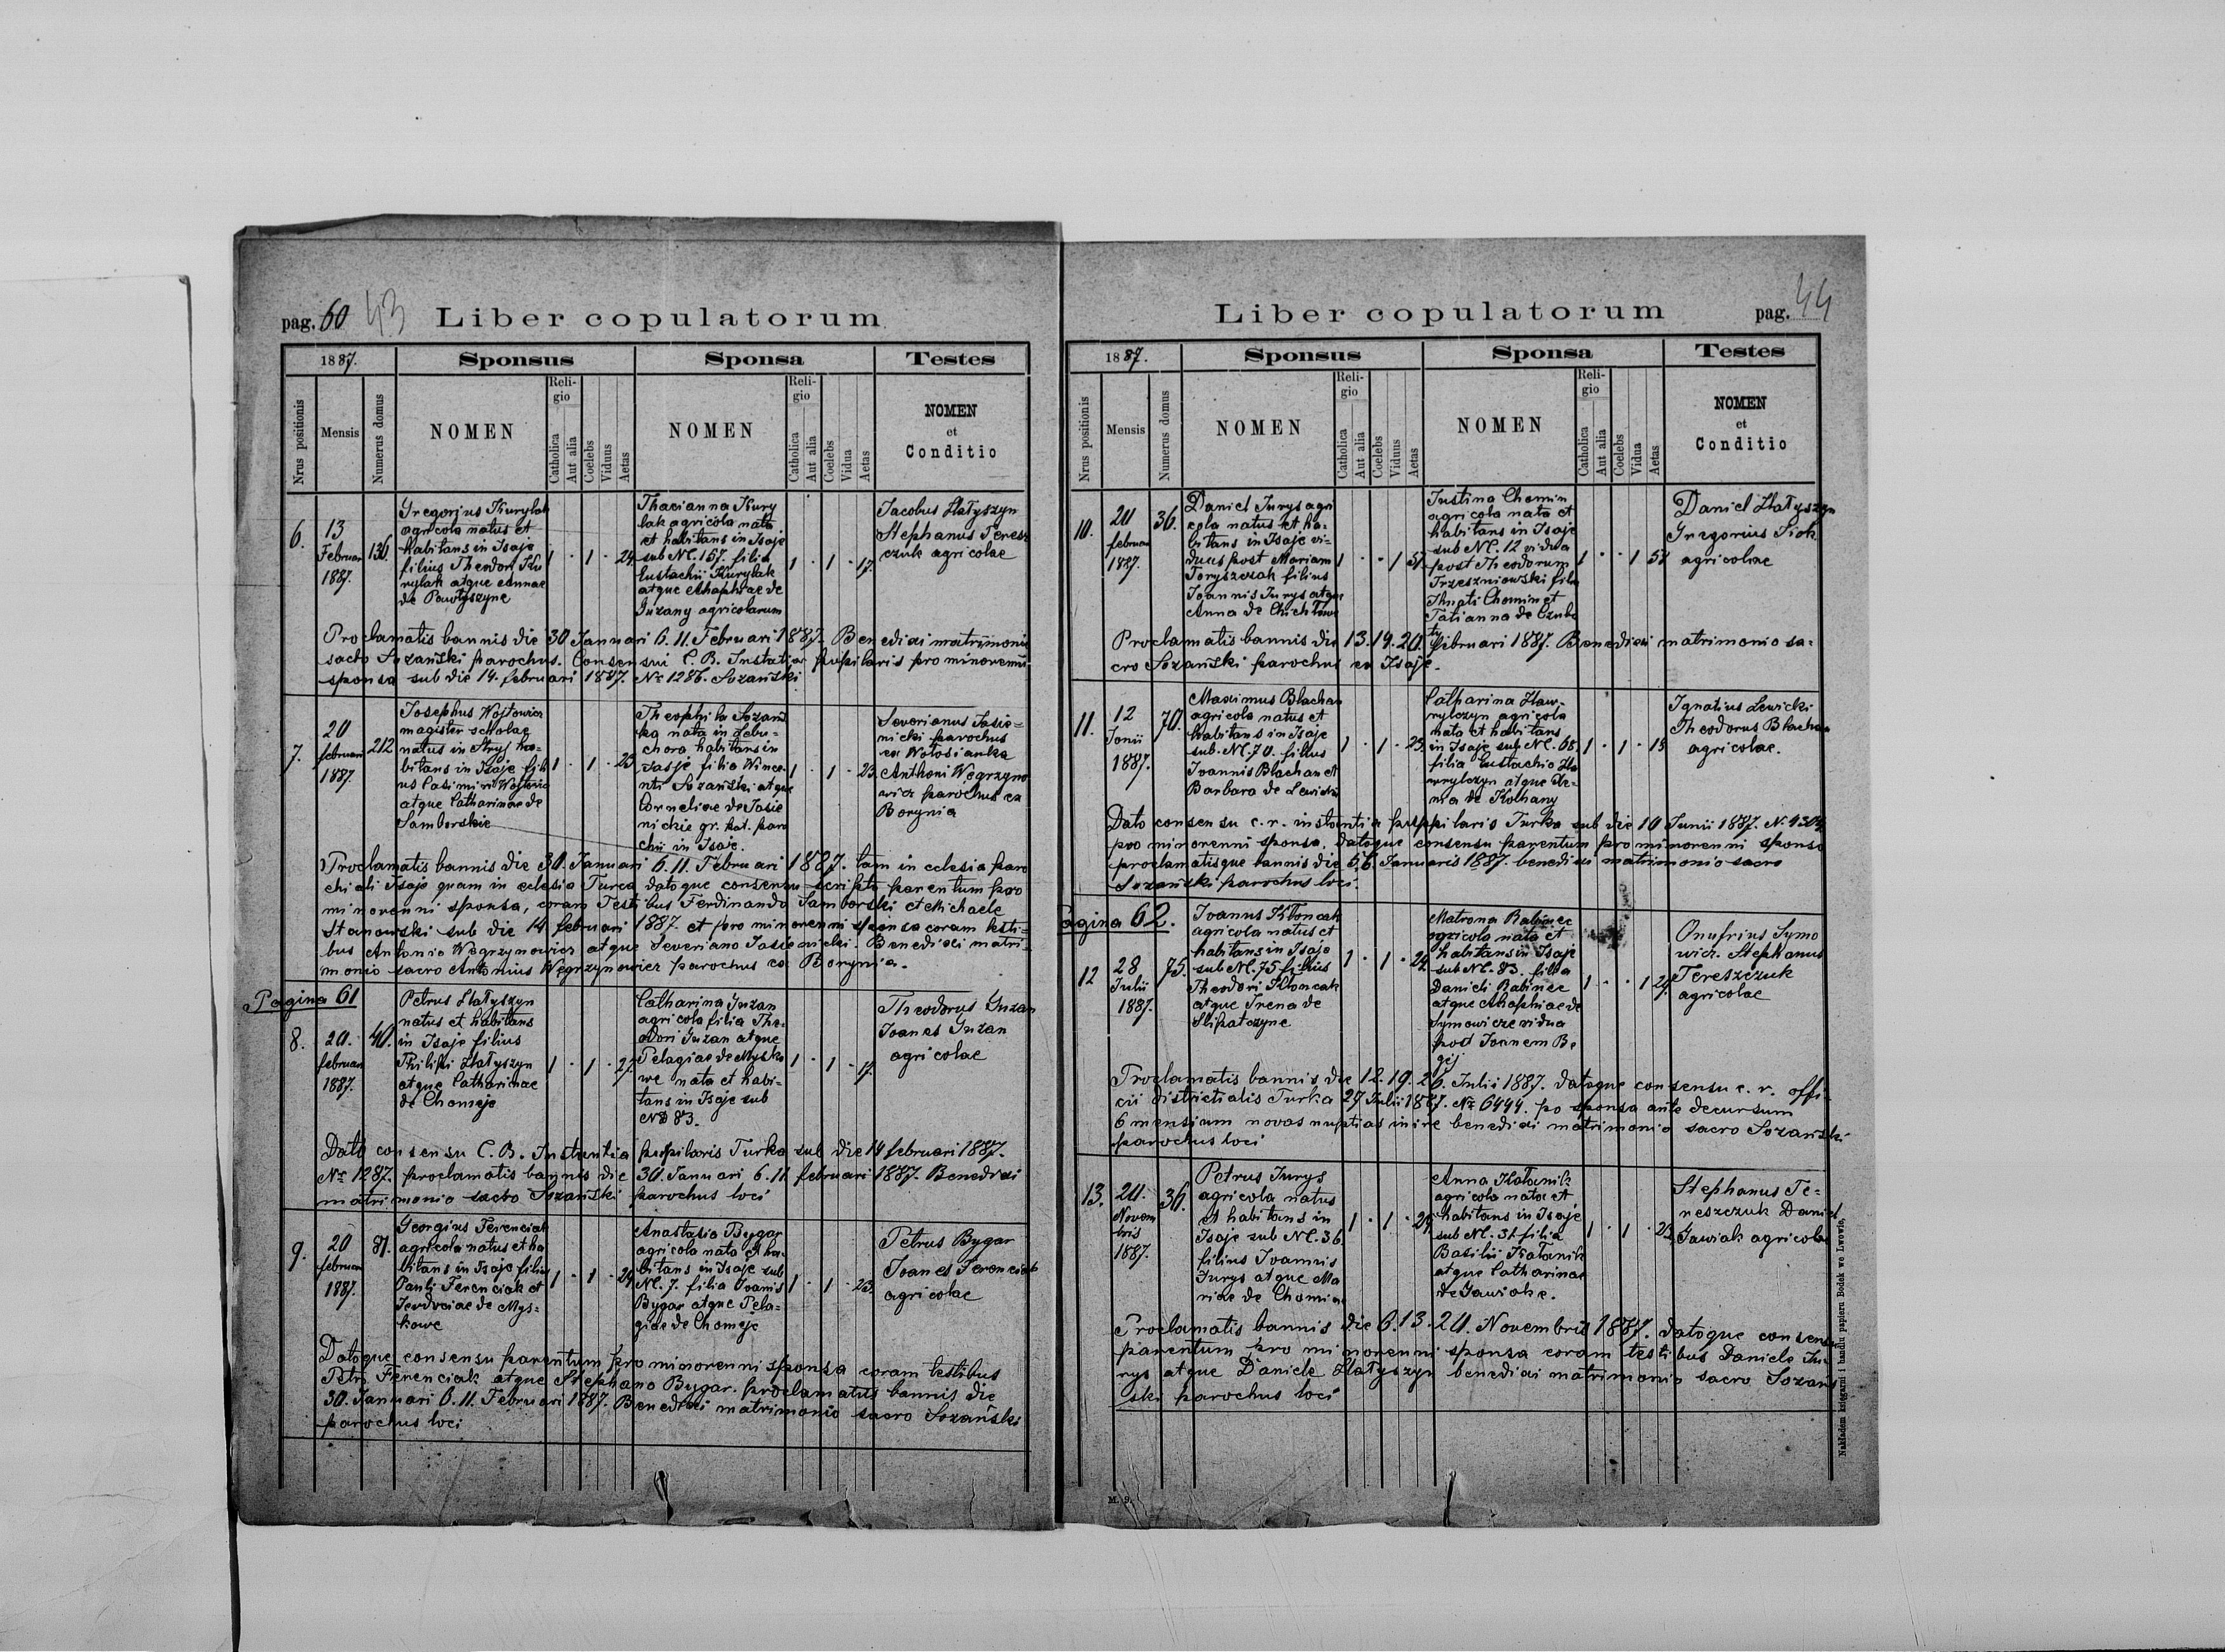 pag. 60 43 Liber copulatorum
1887. Sponsus Sponsa Testes
Nrus positionis Mensis Numerus domus NOMEN Religio Catholica Aut alia Coelebs Viduus Aetas NOMEN Religio Catholica Aut alia Coelebs Vidua Aetas NOMEN et Conditio
6. 13 Februari 1887. 136.
Gregorius Kurylak
agricola natus et
habitans in Isaje
filius Theodori Ku
rylak atque Annae
de Pawłyszyne
1 · 1 · 24
Thacianna Kury
lak agricola nata
et habitans in Isaje
sub Nc. 157. filia
Eustachii Kurylak
atque Ahaphiae de
Guzany agricolarum
1 · 1 · 17.
Jacobus Hatyszyn
Stephanus Teresz
czuk agricolae
Proclamatis bannis die 30 Januari 6. 11. Februari 1887. Benedixi matrimonio
sacro Sozański parochus. Consensui C. B. Instatiae pupilaris pro minorenni
sponsa sub die 14. februari 1887. № 1286. Sozański
7. 20 februari 1887. 212
Josephus Wojtowicz
magister scholae
natus in Stryj ha-
bitans in Isaje fili
us Casimiri Wojtowicz
atque Catharinae de
Samborskie
1 · 1 · 23
Theophila Sozańs
ka nata in Lebu-
chora habitans in
Isaje filia Wince-
nti Sozański atque
Corneliae de Jasie
nickie gr. kat. paro
chii in Isaje.
1 · 1 · 23.
Severianus Jasie-
nicki parochus
ex Wołosianka
Anthoni Węgrzyno
wicz parochus ex
Borynia
Proclamatis bannis die 30. Januari 6. 11. Februari 1887. tam in eclesia paro
chiali Isaje quam in eclesia Turca datoque consensu scripto parentum pro
minorenni sponsa, coram Testibus Ferdinando Samborski et Michaele
Stanowski sub die 14 februari 1887. et pro minorenni sponsa coram testi-
bus Antonio Węgrzynowicz atque Severiano Jasienicki. Benedixi matri-
monio sacro Antonius Węgrzynowicz parochus ex Borynia.
Pagina 61
8. 20. februari 1887. 40.
Petrus Hatyszyn
natus et habitans
in Isaje filius
Philipi Hatyszyn
atque Catharinae
de Chomeje
1 · 1 · 27.
Catharina Guzan
agricola filia The-
odori Guzan atque
Pelagiae de Mysko
we nata et habi-
tans in Isaje sub
№ 83.
1 · 1 · 17.
Theodorus Guzan
Joanes Guzan
agricolae
Dato consensu C. B. Instantia pupilaris Turka sub die 14 februari 1887.
№ 1287. proclamatis bannis die 30. Januari 6. 11. februari 1887. Benedixi
matrimonio sacro Sozański parochus loci
9. 20 februari 1887. 81.
Georgius Ferenciak
agricola natus et ha
bitans in Isaje filius
Pauli Ferenciak et
Jevdociae de Mys-
kowe
1 · 1 · 24
Anastasia Bygar
agricola nata et ha-
bitans in Isaje sub
Nc. 7. filia Ioanis
Bygar atque Pela-
giae de Chomeje
1 · 1 · 23.
Petrus Bygar
Joanes Ferenciak
agricolae
Datoque consensu parentum pro minorenni sponsa coram testibus
Petri Ferenciak atque Stephano Bygar. proclamatis bannis die
30. Januari 6. 11. Februari 1887. Benedixi matrimonio sacro Sozański
parochus loci
Liber copulatorum pag. 44
1887. Sponsus Sponsa Testes
Nrus positionis Mensis Numerus domus NOMEN Religio Catholica Aut alia Coelebs Viduus Aetas NOMEN Religio Catholica Aut alia Coelebs Vidua Aetas NOMEN et Conditio
10. 20 februari 1887. 36.
Daniel Jurys agri
cola natus et ha-
bitans in Isaje vi-
duus post Mariam
Toryszczak filius
Joannis Jurys atque
Anna de
1 · · 1 57.
Justina Chomin
agricola nata et
habitans in Isaje
sub Nc. 12 vidua
post Theodorum
Trzeszniowski filia
Ihnati Chomin et
Tatianna de Czuba
ty
1 · · 1 57
Daniel Hatyszyn
Gregorius Siok
agricolae
Proclamatis bannis die 13. 19. 20. februari 1887. Benedixi matrimonio sa-
cro Sozański parochus ex Isaje.
11. 12 Jonii 1887. 70.
Maximus Blachan
agricola natus et
habitans in Isaje
sub. Nc. 70. filius
Joannis Blachan et
Barbara de Lewickie
1 · 1 · 23.
Catharina Haw-
rylczyn agricola
nata et habitans
in Isaje sub Nc. 68.
filia Eustachio Ha
wrylczyn atque Xe-
nia de Kohany
1 · 1 · 15
Ignatius Lewicki
Theodorus Blachan
agricolae.
Dato consensu c. r. instantia puppilaris Turka sub die 10 Junii 1887. N. 4504
pro minorenni sponsa, datoque consensu parentum pro minorenni sponso
proclamatisque bannis die 5. 6. Januaris 1887. benedixi matrimonio sacro
Sozański parochus loci.
Pagina 62.
12 28 Julii 1887. 75.
Joanus Kłoncak
agricola natus et
habitans in Isaje
sub Nc. 75 filius
Theodori Kłoncak
atque Irena de
Slipatczyne
1 · 1 · 24
Matrona Babinec
agricola nata et
habitans in Isaje
sub Nc. 83. filia
Danieli Babinec
atque Ahaphiae de
Symowicze vidua
post Joanem Be
gej
1 · · 1 27.
Onufrius Symo
wicz. Stephanus
Tereszczuk
agricolae
Proclamatis bannis die 12. 19. 26. Julii 1887. datoque consensu c. r. offi-
cii districtialis Turka 27 Julii 1887. № 6444. po sponsa ante decursum
6 mensium novas nuptias inire benedixi matrimonio sacro Sozański
parochus loci
13. 20. Novem bris 1887. 36.
Petrus Jurys
agricola natus
et habitans in
Isaje sub Nc. 36
filius Joannis
Jurys atque Ma
riae de Chomine
1 · 1 · 24
Anna Kałanik
agricola nata et
habitans in Isaje
sub Nc. 31 filia
Basilii Kałanik
atque Catharinae
de Gawiake.
1 · 1 · 23
Stephanus Te-
reszczuk Daniel
Gawiak agricolae
Proclamatis bannis die 6. 13. 20. Novembris 1887. datoque consensu
parentum pro minorenni sponsa coram testibus Daniele Ju-
rys atque Daniele Hatyszyn benedixi matrimonio sacro Sozańs
ski parochus loci
M. 9.
Nakładem księgarni i handlu papieru Bodek we Lwowie,